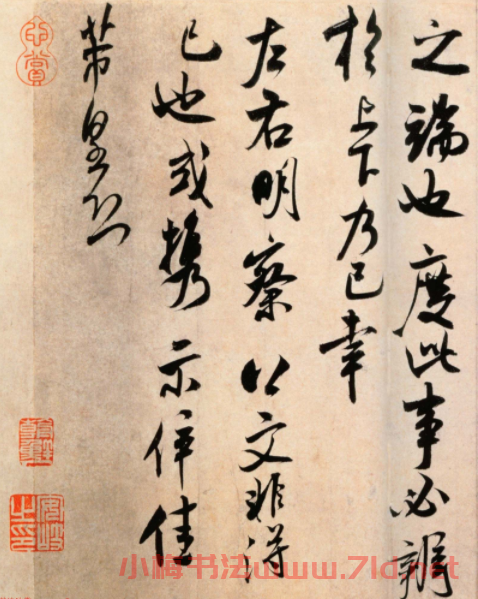 之端也度此事必
於上下乃已幸
左右明察公文非得
已也或攜示伻佳
芾皇恐
小梅书法www.7ld.net